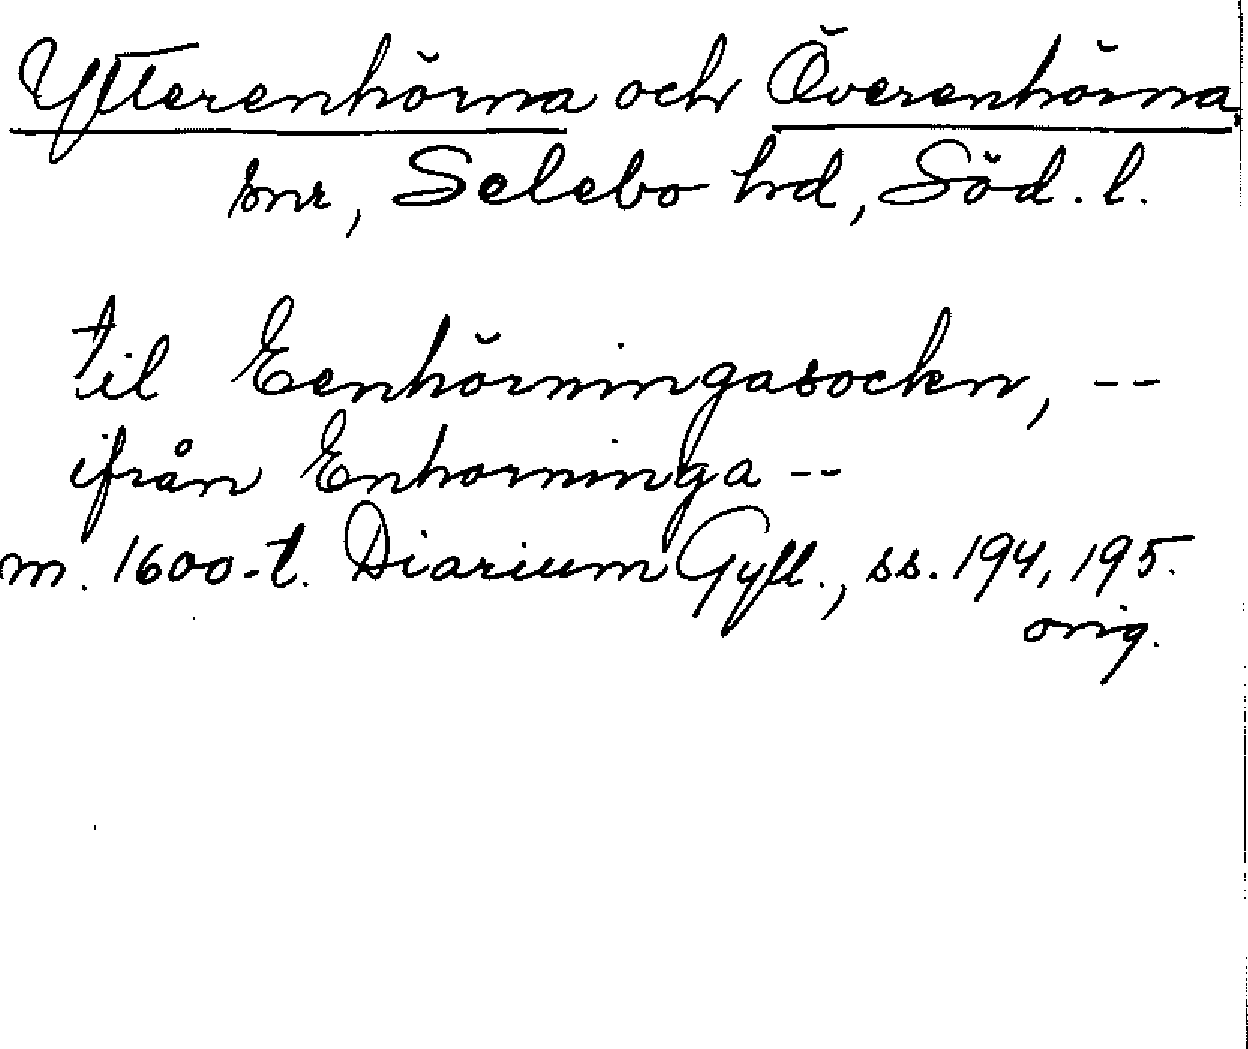 Ytterenhörna och Överenhörna,
snr, Selebo hd, Söd. l.
til Eenhörningasockn, --
ifrån Enhorninga --
m. 1600-t. Diarium Gyll., ss. 194, 195.
orig.